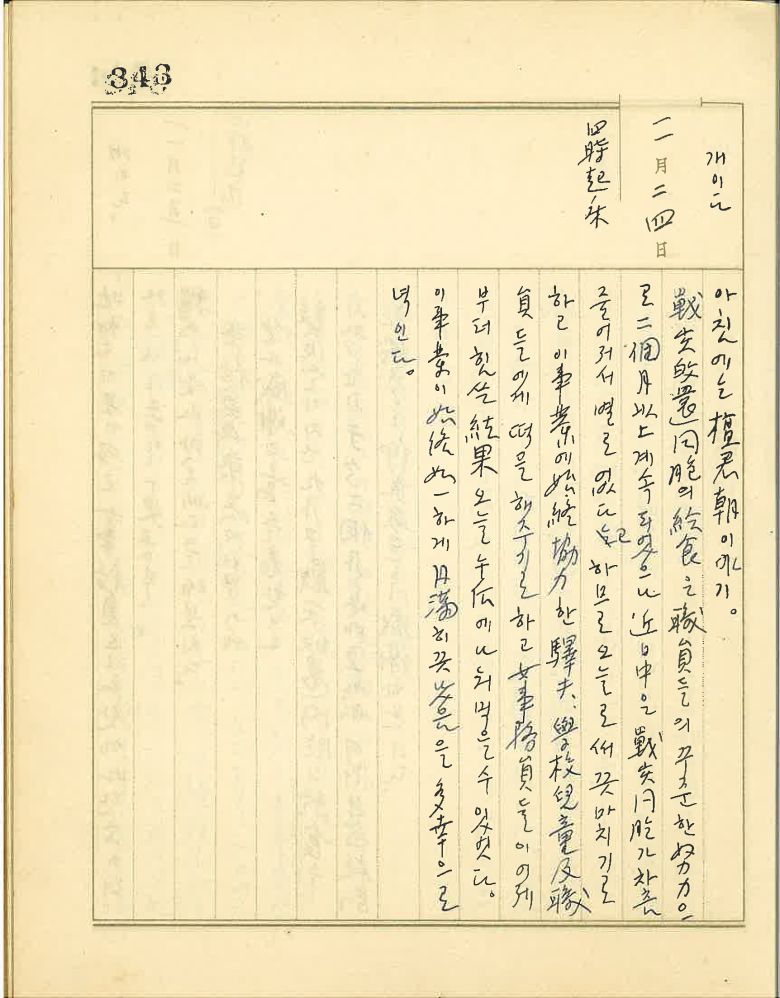 343
개이다
一一月二四日
四時起床
아침에는 檀君朝이애기。
戰災歸還同胞의 給食은 職員들의 꾸준한 努力으
로 二個月以上 계속되였으나 近日中은 戰災同胞가 차츰
줄어저서 별로 없다고 하므로 오늘로써 끗마치기로
하고 이 事業에 始終 協力한 驛夫、學校兒童及職
員들에게 떡을 해주기로 하고 女事務員들이 어제
부터 힘쓴 結果 오늘 午后에 나눠 먹을 수 있었다。
이 事業이 始終如一하게 円滿히 끗났음을 多幸으로
녁인다。